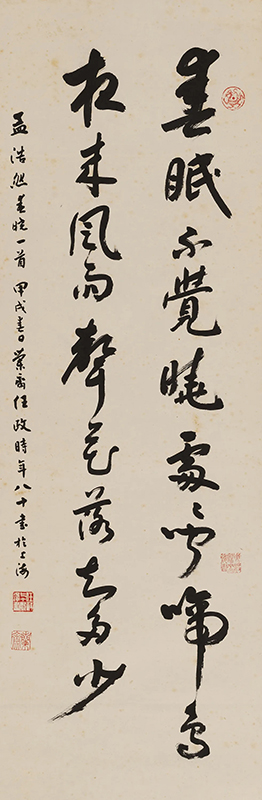 春眠不覺曉處々聞啼鳥
夜來風雨聲花落知多少
孟浩然春曉一首 甲戌春日蘭齋任政時年八十書於上海